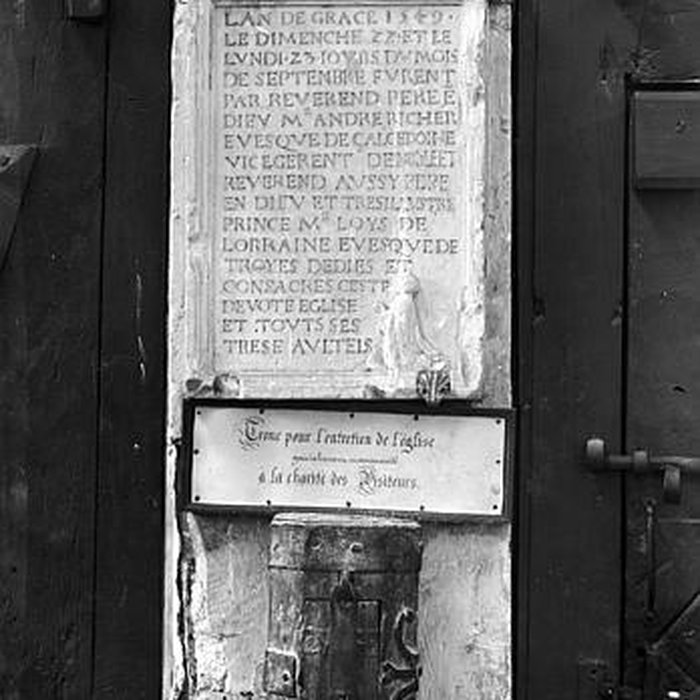 LAN DE GRACE 1549.
LE DIMENCHE 22 ET LE
LVNDI 23 IOVRS DV MOIS
DE SEPTEMBRE FVRENT
PAR REVEREND PERE E
DIEV Mʳ ANDRE RICHER
EVESQVE DE CALCEDOINE
VICEGERENT DE ET
REVEREND AVSSY PERE
EN DIEV ET TRESILLVSTRE
PRINCE Mʳ LOYS DE
LORRAINE EVESQVE DE
TROYES DEDIES ET
CONSACRES CESTE
DEVOTE EGLISE
ET TOVTS SES
TRESE AVLTEIS
Tronc pour l'entretien de l'église
spécialement recommandé
à la charité des Visiteurs.